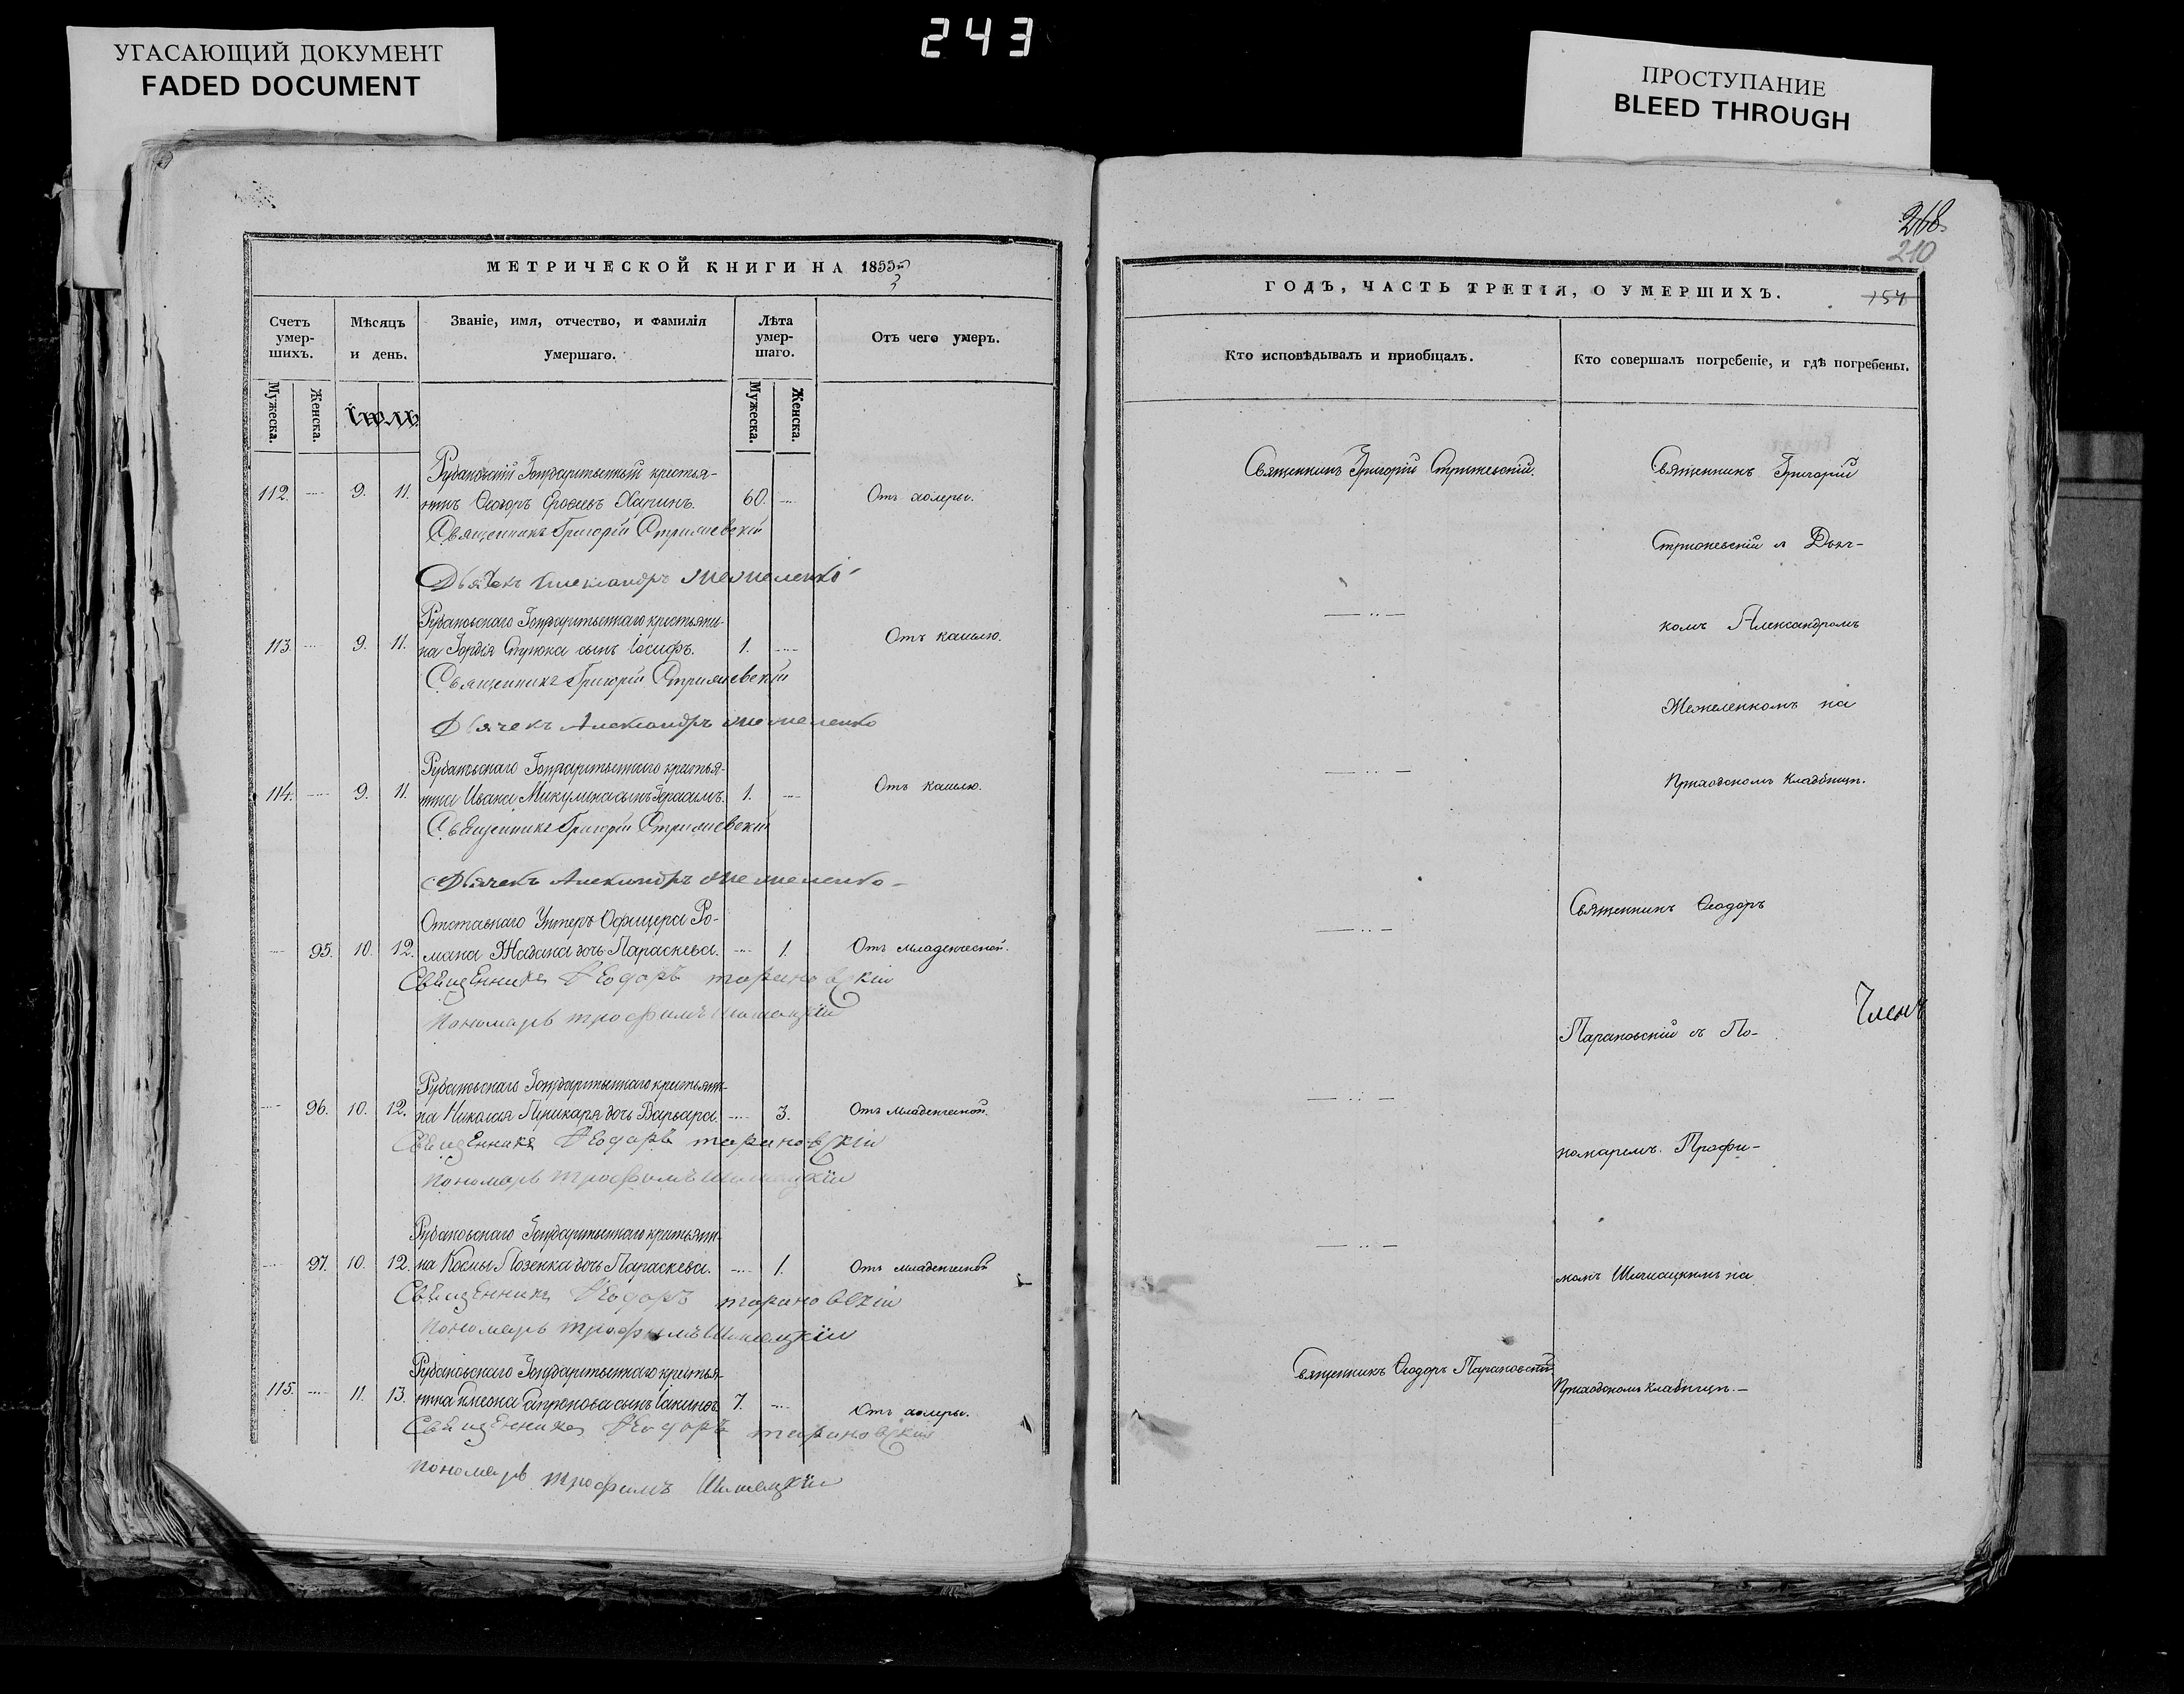 243
УГАСАЮЩИЙ ДОКУМЕНТ
FADED DOCUMENT
ПРОСТУПАНИЕ
BLEED THROUGH
268.
210
МЕТРИЧЕСКОЙ КНИГИ НА 1855й
3
Счетъ умер-шихъ.
Мужеска.
Женска.
Мѣсяцъ и день.
Званіе, имя, отчество, и фамилія умершаго.
Лѣта умер-шаго.
Мужеска.
Женска.
Отъ чего умеръ.
Іюль
Рубановскій Государственный крестья-
112. 9. 11. нинъ Ѳеодоръ Ерофеевъ Харинъ. 60. Отъ холеры.
Священникъ Григорій Стрижевскій
Дьячекъ Александръ Межеленко
Рубановскаго Государственнаго крестьяни-
113. 9. 11. на Гордія сынъ Іосифъ. 1. Отъ кашлю.
Священникъ Григорій Стрижевскій
Дьячекъ Александръ Межеленко
Рубановскаго Государственнаго крестья-
114. 9. 11. нина Ивана Микулина сынъ Герасимъ. 1. Отъ кашлю.
Священникъ Григорій Стрижевскій
Дьячекъ Александръ Межеленко
Отставнаго Унтеръ Офицера Ро-
95. 10. 12. мана Жадана дочь Параскева. 1. Отъ младенческой.
Священникъ Ѳеодоръ Тарановскій
Пономарь Трофимъ Шишацкій
Рубановскаго Государственнаго крестьяни-
96. 10. 12. на Николая Пушкаря дочь Варвара. 3. Отъ младенческой.
Священникъ Ѳеодоръ Тарановскій
Пономарь Трофимъ Шишацкій
Рубановскаго Государственнаго крестьяни-
97. 10. 12. на Космы Лозенка дочь Параскева. 1. Отъ младенческой
Священникъ Ѳеодоръ Тарановскій
Пономарь Трофимъ Шишацкій
Рубановскаго Государственнаго крестья-
115. 11. 13. нина сынъ 7. Отъ холеры.
Священникъ Ѳеодоръ Тарановскій
Пономарь Трофимъ Шишацкій
ГОДЪ, ЧАСТЬ ТРЕТІЯ, О УМЕРШИХЪ.
154
Кто исповѣдывалъ и пріобщалъ.
Кто совершалъ погребеніе, и гдѣ погребены.
Священникъ Григорій Стрижевскій.
Священникъ Григорій
Стрижевскій съ Дьяч-
комъ Александромъ
Межеленкомъ на
Приходскомъ кладбищѣ.
Священникъ Ѳеодоръ
Членъ
Тарановскій съ По-
номаремъ Трофи-
момъ Шишацкимъ на
Священникъ Ѳеодоръ Тарановскій.
Приходскомъ кладбищѣ.